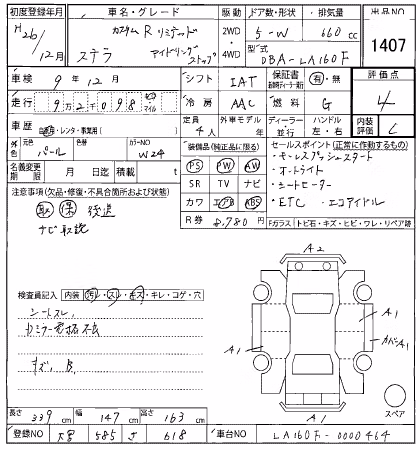 初度登録年月 車名・グレード 駆動 ドア数・形状 排気量 出品NO
H26/12月 ステラ カスタム R リミテッド アイドリングストップ 2WD 4WD 5-W 660cc 1407
型式 DBA-LA160F
車検 9年12月 シフト IAT 保証書 有・無 評価点 4
走行 9万2千098 Km マイル 冷房 AAC 燃料 G 内装評価 C
車歴 自家用・レンタ・事業用( ) 定員 4人 外車モデル年 年 ディーラー 並行 ハンドル 左・右
外色 元色 パール カラーNO W24 装備品(純正品に限る) セールスポイント(正常に作動するもの)
名義変更期限 月 日迄 積載量 t PS PW AW ・キーレスプッシュスタート
注意事項(欠品・修復・不具合箇所および状態) SR TV ナビ ・オートライト
取 保 後送 カワ エアB ABS ・シートヒーター
ナビ取説 R券 8,780円 ・ETC ・エコアイドル
Fガラス トビ石・キズ・ヒビ・ワレ・リペア跡
A2
検査員記入 内装 汚レ・スレ・キズ・キレ・コゲ・穴
シートスレ A1
カバーA1
A1
キズ、B
A1
スペア
長さ 339cm 幅 147cm 高さ 163cm
登録NO 585 さ 618 車台NO LA160F-0000464